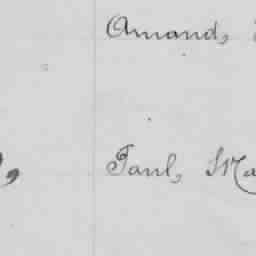 Amand,
Paul, Ma